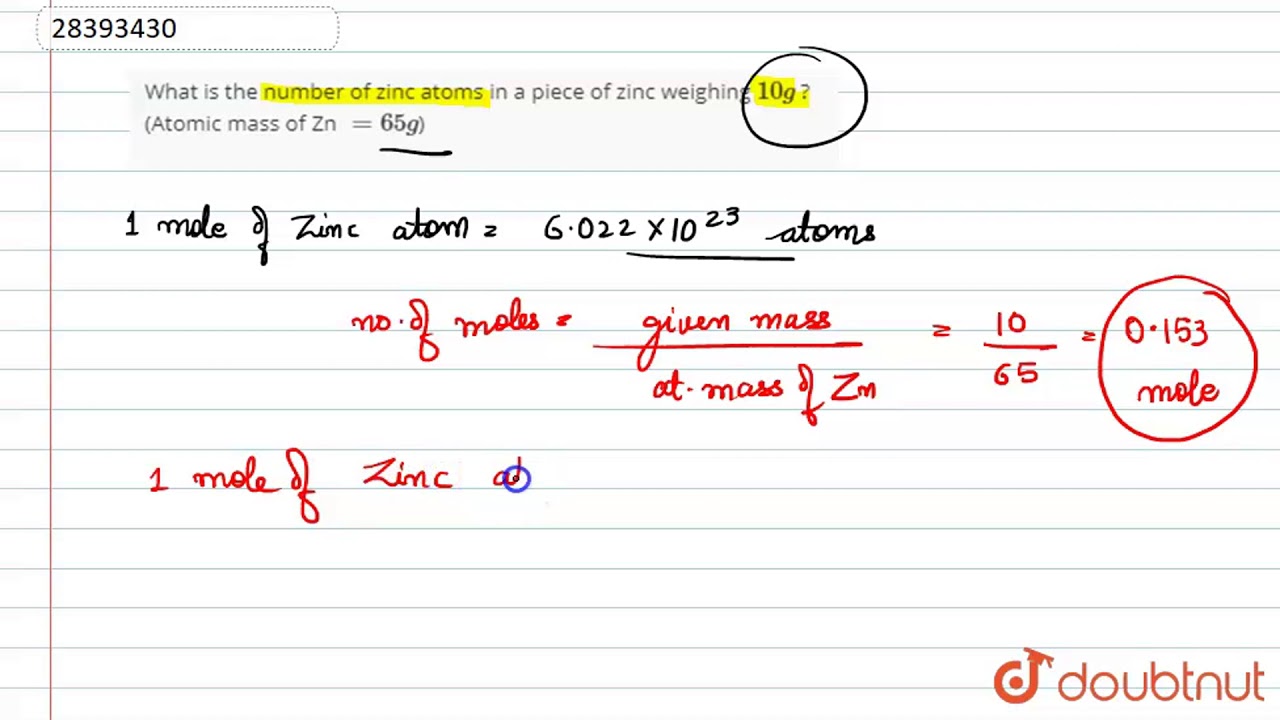 28393430
What is the number of zinc atoms in a piece of zinc weighing 10g?
(Atomic mass of Zn = 65g)
1 mole of Zinc atom = 6.022 × 10^23 atoms
no. of moles = given mass / at. mass of Zn = 10 / 65 = 0.153 mole
1 mole of Zinc at
doubtnut